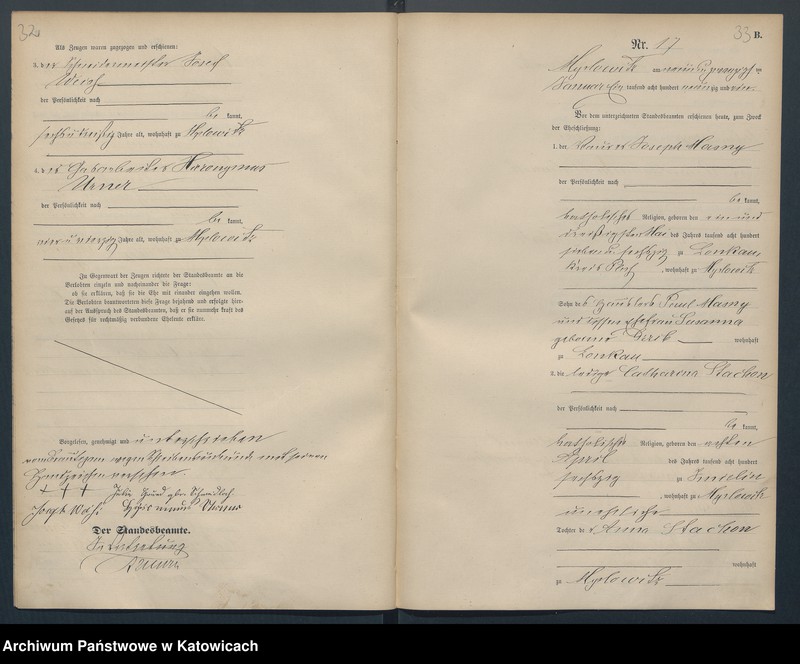 32
Als Zeugen waren zugezogen und erschienen:
3. der Schneidermeister Josef
der Persönlichkeit nach
be kannt,
sechsunddreißig Jahre alt, wohnhaft zu Myslowitz
4. der Grubenarbeiter Hieronymus
der Persönlichkeit nach
be kannt,
vierundvierzig Jahre alt, wohnhaft zu Myslowitz
In Gegenwart der Zeugen richtete der Standesbeamte an die
Verlobten einzeln und nacheinander die Frage:
ob sie erklären, daß sie die Ehe mit einander eingehen wollen.
Die Verlobten beantworteten diese Frage bejahend und erfolgte hier-
auf der Ausspruch des Standesbeamten, daß er sie nunmehr kraft des
Gesetzes für rechtmäßig verbundene Eheleute erkläre.
Vorgelesen, genehmigt und unterschrieben
+ + +
Joseph
Der Standesbeamte.
In Vertretung
33 B.
Nr. 17
Myslowitz am neunundzwanzigsten
Januar tausend acht hundert neunzig und vier
Vor dem unterzeichneten Standesbeamten erschienen heute, zum Zweck
der Eheschließung:
1. der Joseph Masny
der Persönlichkeit nach
be kannt,
katholischer Religion, geboren den ein und
dreißigsten Mai des Jahres tausend acht hundert
sieben u. sechzig zu Lonkau,
Kreis Pleß, wohnhaft zu Myslowitz
Sohn des Häuslers Paul Masny
und dessen Ehefrau Susanna
geborene wohnhaft
zu Lonkau
2. die ledige Catharina Stachon
der Persönlichkeit nach
be kannt,
katholischer Religion, geboren den achten
April des Jahres tausend acht hundert
sechzig zu Imielin
, wohnhaft zu Myslowitz
uneheliche
Tochter der Anna Stachon
wohnhaft
zu Myslowitz
Archiwum Państwowe w Katowicach